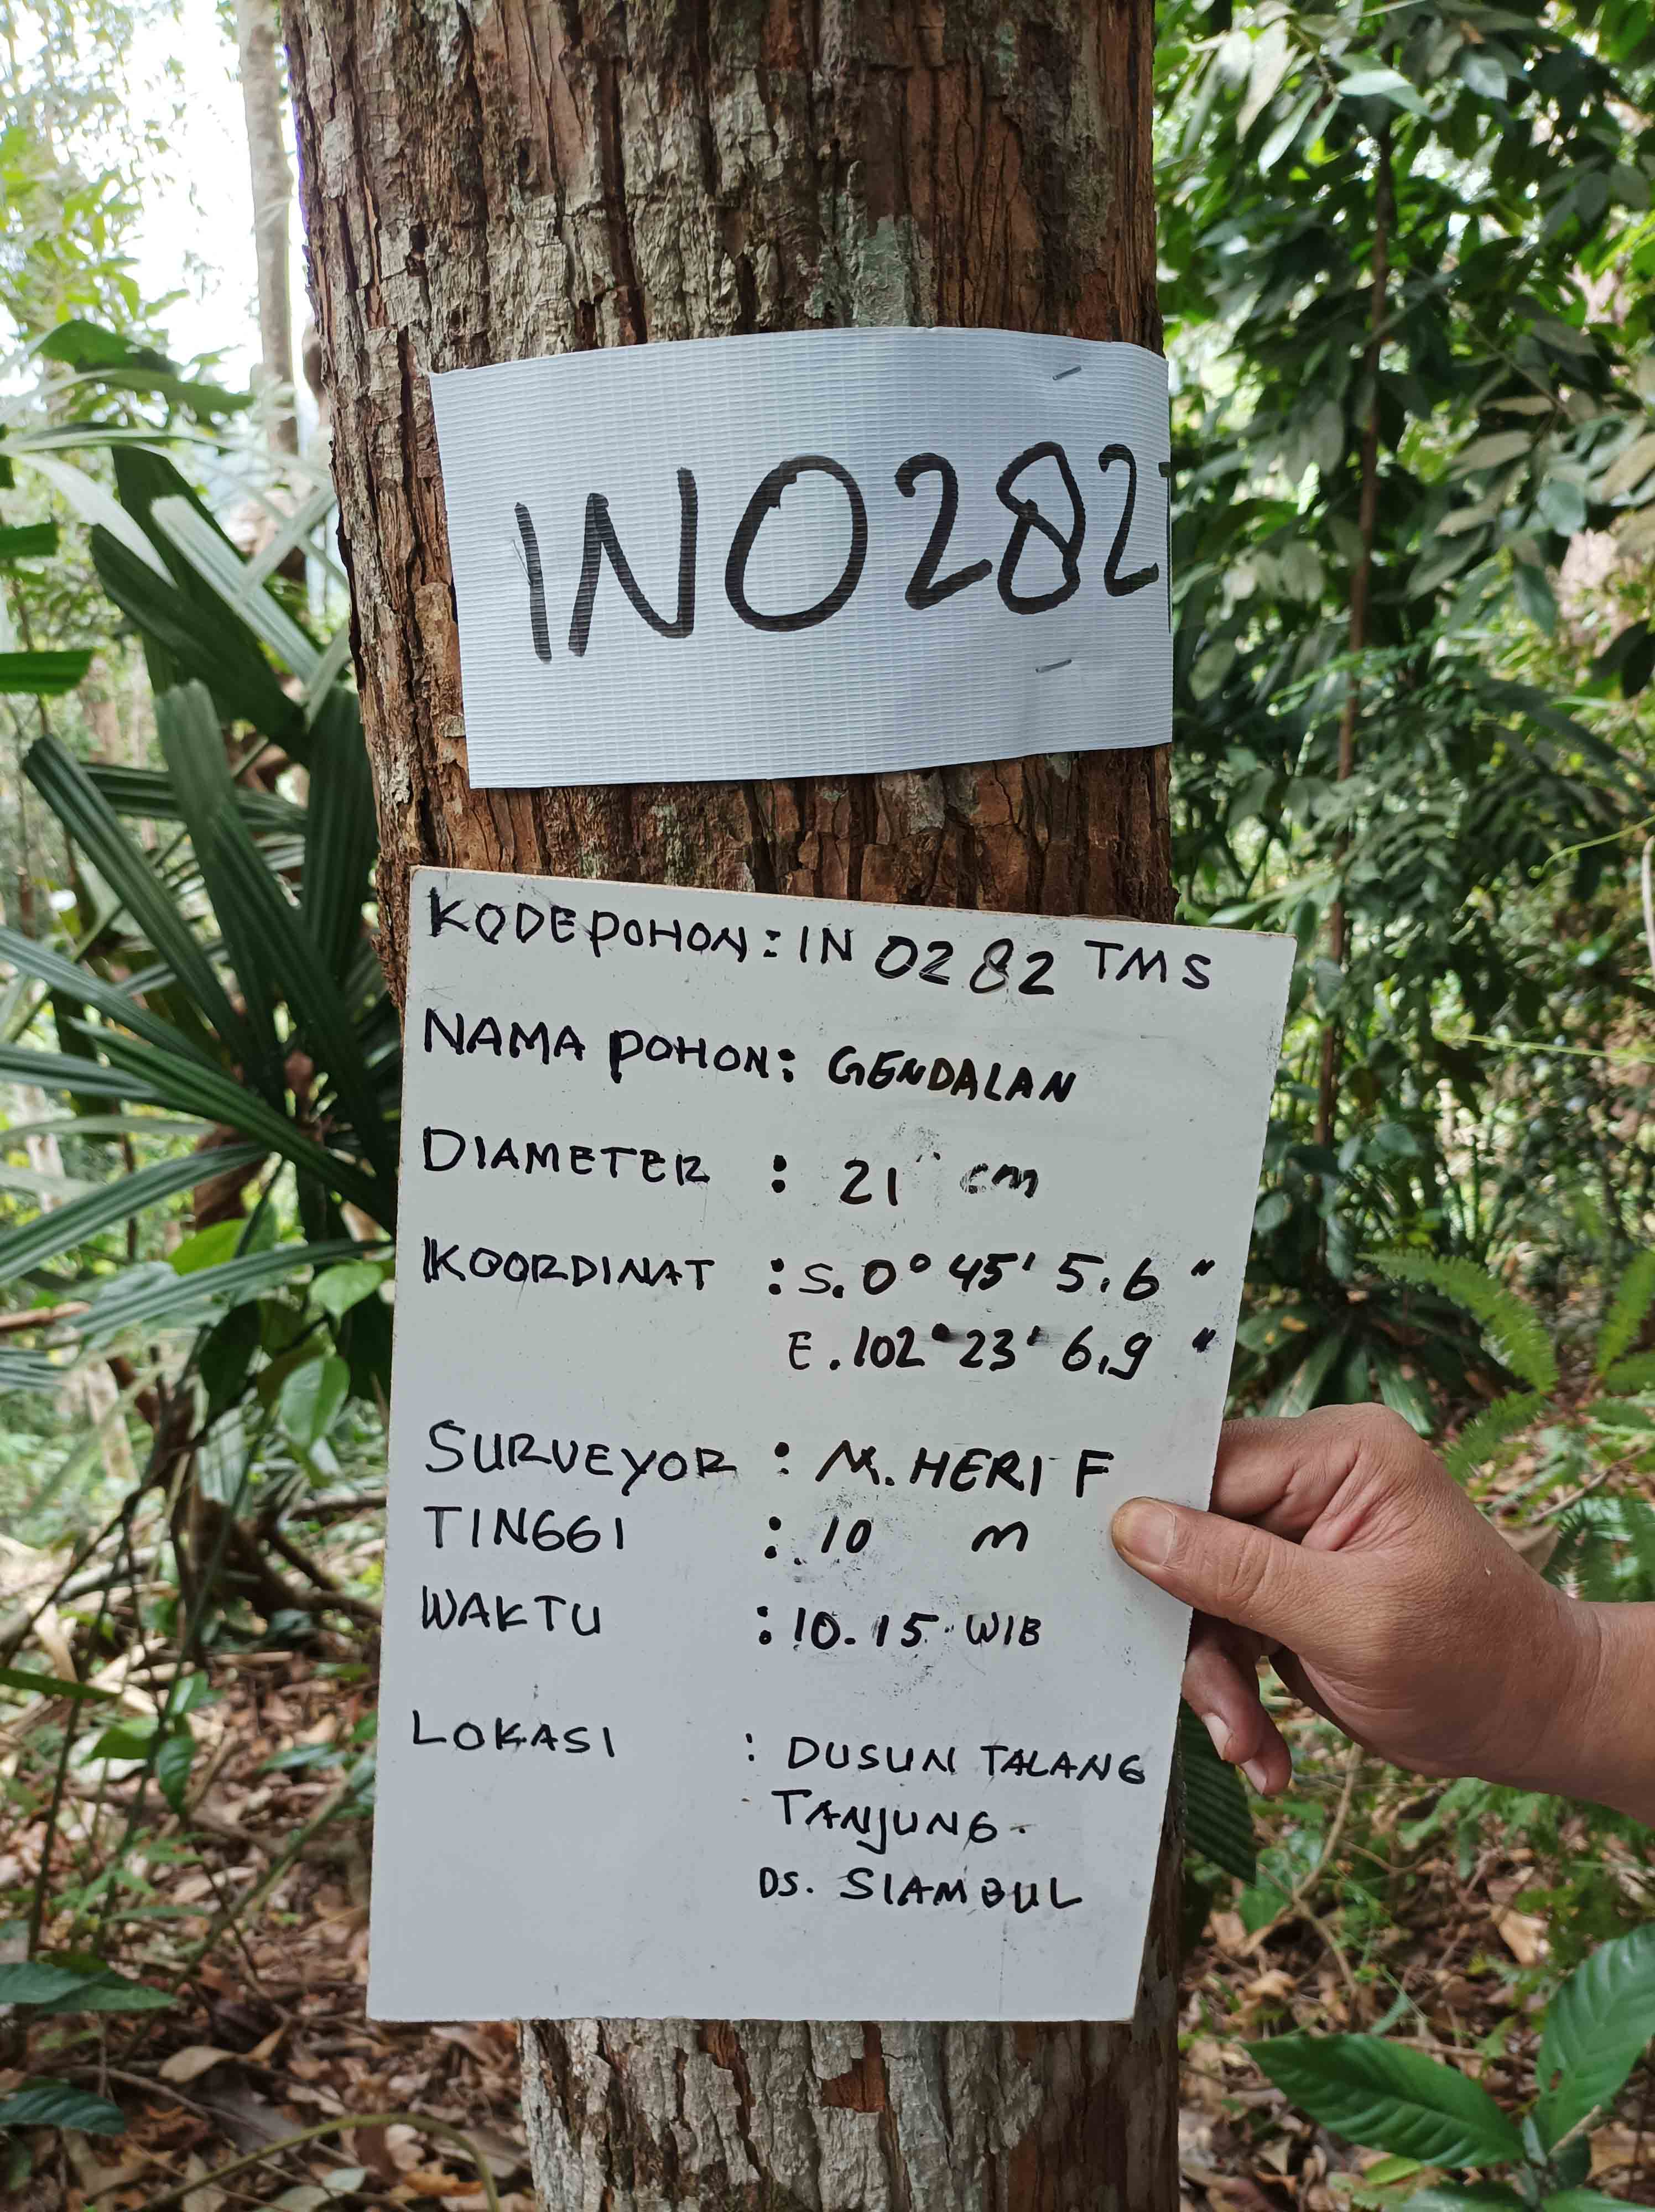 IN0282
KODE POHON : IN 0282 TMS
NAMA POHON : GENDALAN
DIAMETER : 21 cm
KOORDINAT : S. 0° 45' 5.6 "
E. 102° 23' 6,9 "
SURVEYOR : M. HERI F
TINGGI : 10 m
WAKTU : 10.15 WIB
LOKASI : DUSUN TALANG
TANJUNG.
DS. SIAMBUL